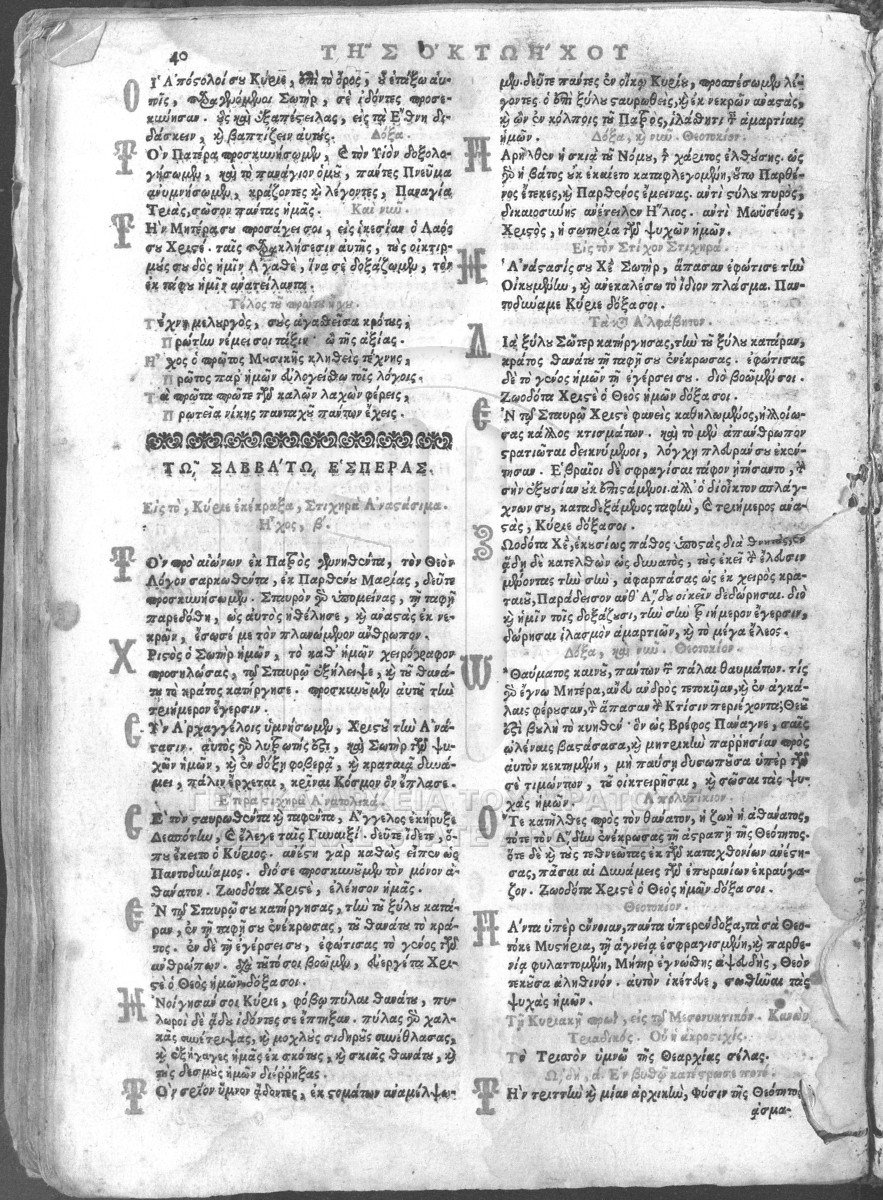 40
ΤΗ͂Σ ὌΚΤΩΉΧΟΥ
Οἱ Ἀπόστολοί σου Κύριε, ἐπὶ τὸ ὄρος, οὗ ἐτάξω αὐ-
τοῖς, παραγενόμενοι Σωτὴρ, σὲ ἰδόντες προσε-
κύνησαν. οὓς καὶ ἐξαπέστειλας, εἰς τὰ Ἔθνη δι-
δάσκειν, καὶ βαπτίζειν αὐτούς. Δόξα.
Τὸν Πατέρα προσκυνήσωμεν, καὶ τὸν Υἱὸν δοξολο-
γήσωμεν, καὶ τὸ πανάγιον ὁμοῦ, πάντες Πνεῦμα
ἀνυμνήσωμεν, κράζοντες καὶ λέγοντες, Παναγία
Τριὰς, σῶσον πάντας ἡμᾶς. Καὶ νῦν.
Τὴν Μητέρα σου προσάγει σοι, εἰς ἱκεσίαν ὁ Λαός
σου Χριστέ. ταῖς παρακλήσεσιν αὐτῆς, τοὺς οἰκτιρ-
μούς σου δὸς ἡμῖν Ἀγαθὲ, ἵνα σὲ δοξάζωμεν, τὸν
ἐκ τάφου ἡμῖν ἀνατείλαντα.
Τέλος τοῦ πρώτου ἤχου.
Τέχνη μελουργὸς, σοὺς ἀγασθεῖσα κρότους,
Πρώτην νέμει σοι τάξιν· ὢ τῆς ἀξίας.
Ἦχος ὁ πρῶτος Μουσικῆς κληθεὶς τέχνης,
Πρῶτος παρ' ἡμῶν εὐλογείσθω τοῖς λόγοις.
Τὰ πρῶτα πρῶτε τῶν καλῶν λαχὼν φέρεις,
Πρωτεῖα νίκης πανταχοῦ πάντων ἔχεις.
Τῼ͂ ΣΑΒΒΑ´Τῼ ἘΣΠΕΡΑΣ.
Εἰς τὸ, Κύριε ἐκέκραξα, Στιχηρὰ Ἀναστάσιμα.
Ἦχος, β'.
Τὸν πρὸ αἰώνων ἐκ Πατρὸς γεννηθέντα, τὸν Θεὸν
Λόγον σαρκωθέντα, ἐκ Παρθένου Μαρίας, δεῦτε
προσκυνήσωμεν. Σταυρὸν γὰρ ὑπομείνας, τῇ ταφῇ
παρεδόθη, ὡς αὐτὸς ἠθέλησε, καὶ ἀναστὰς ἐκ νε-
κρῶν, ἔσωσέ με τὸν πλανώμενον ἄνθρωπον.
Χριστὸς ὁ Σωτὴρ ἡμῶν, τὸ καθ' ἡμῶν χειρόγραφον
προσηλώσας, τῷ Σταυρῷ ἐξήλειψε, καὶ τοῦ θανά-
του τὸ κράτος κατήργησε. προσκυνοῦμεν αὐτοῦ τὴν
τριήμερον ἔγερσιν.
Σὺν Ἀρχαγγέλοις ὑμνήσωμεν, Χριστοῦ τὴν Ἀνά-
στασιν. αὐτὸς γὰρ λυτρωτής ἐστι, καὶ Σωτὴρ τῶν ψυ-
χῶν ἡμῶν, καὶ ἐν δόξῃ φοβερᾷ, καὶ κραταιᾷ δυνά-
μει, πάλιν ἔρχεται, κρῖναι Κόσμον ὃν ἔπλασε.
Ἕτερα στιχηρὰ Ἀνατολικά.
Σὲ τὸν σταυρωθέντα καὶ ταφέντα, Ἄγγελος ἐκήρυξε
Δεσπότην, καὶ ἔλεγε ταῖς Γυναιξί. δεῦτε ἴδετε, ὅ-
που ἔκειτο ὁ Κύριος. ἀνέστη γὰρ καθὼς εἶπεν ὡς
Παντοδύναμος. διό σε προσκυνοῦμεν τὸν μόνον ἀ-
θάνατον. Ζωοδότα Χριστὲ, ἐλέησον ἡμᾶς.
Ἐν τῷ Σταυρῷ σου κατήργησας, τὴν τοῦ ξύλου κατά-
ραν, ἐν τῇ ταφῇ σου ἐνέκρωσας, τοῦ θανάτου τὸ κρά-
τος. ἐν δὲ τῇ ἐγέρσει σου, ἐφώτισας τὸ γένος τῶν
ἀνθρώπων. διὰ τοῦτό σοι βοῶμεν, εὐεργέτα Χρι-
στὲ ὁ Θεὸς ἡμῶν δόξα σοι.
Ἠνοίγησάν σοι Κύριε, φόβῳ πύλαι θανάτου, πυ-
λωροὶ δὲ ᾅδου ἰδόντες σε ἔπτηξαν. πύλας γὰρ χαλ-
κᾶς συνέτριψας, καὶ μοχλοὺς σιδηροῦς συνέθλασας,
καὶ ἐξήγαγες ἡμᾶς ἐκ σκότους, καὶ σκιᾶς θανάτου, καὶ
τοὺς δεσμοὺς ἡμῶν διέῤῥηξας.
Τὸν σωτήριον ὕμνον ᾄδοντες, ἐκ στομάτων ἀναμέλψω-
μεν. δεῦτε πάντες ἐν οἴκῳ Κυρίου, προσπέσωμεν λέ-
γοντες· ὁ ἐπὶ ξύλου σταυρωθεὶς, καὶ ἐκ νεκρῶν ἀναστὰς,
καὶ ὢν ἐν κόλποις τοῦ Πατρὸς, ἱλάσθητι ταῖς ἁμαρτίαις
ἡμῶν. Δόξα, καὶ νῦν. Θεοτοκίον.
Παρῆλθεν ἡ σκιὰ τοῦ Νόμου, τῆς χάριτος ἐλθούσης. ὡς
γὰρ ἡ βάτος οὐκ ἐκαίετο καταφλεγομένη, οὕτω Παρθέ-
νος ἔτεκες, καὶ Παρθένος ἔμεινας. ἀντὶ στύλου πυρὸς,
δικαιοσύνης ἀνέτειλεν Ἥλιος. ἀντὶ Μωϋσέως,
Χριστὸς, ἡ σωτηρία τῶν ψυχῶν ἡμῶν.
Εἰς τὸν Στίχον Στιχηρά.
Ἡ Ἀνάστασίς σου Χὲ Σωτὴρ, ἅπασαν ἐφώτισε τὴν
Οἰκουμένην, καὶ ἀνεκαλέσω τὸ ἴδιον πλάσμα. Παν-
τοδύναμε Κύριε δόξα σοι.
Τὰ κατὰ Ἀλφάβητον.
Διὰ ξύλου Σῶτερ κατήργησας, τὴν τοῦ ξύλου κατάραν,
κράτος θανάτου τῇ ταφῇ σου ἐνέκρωσας. ἐφώτισας
δὲ τὸ γένος ἡμῶν τῇ ἐγέρσει σου. διὸ βοῶμέν σοι.
Ζωοδότα Χριστὲ ὁ Θεὸς ἡμῶν δόξα σοι.
Ἐν τῷ Σταυρῷ Χριστὲ φανεὶς καθηλωμένος, ἠλλοίω-
σας κάλλος κτισμάτων. καὶ τὸ μὲν ἀπάνθρωπον
στρατιῶται δεικνύμενοι, λόγχῃ πλευράν σου ἐκέν-
τησαν. Ἑβραῖοι δὲ σφραγίσαι τάφον ᾐτήσαντο, τὴν
σὴν ἐξουσίαν οὐκ ἐπιστάμενοι. ἀλλ' ὁ δι' οἶκτον σπλάγ-
χνων σου, καταδεξάμενος ταφὴν, καὶ τριήμερος ἀνα-
στὰς, Κύριε δόξα σοι.
Ζωοδότα Χὲ, ἑκουσίως πάθος ὑποστὰς διὰ θνητοὺς, ἐν
ᾅδῃ δὲ κατελθὼν ὡς δυνατὸς, τοὺς ἐκεῖ τὴν ἔλευσιν
μένοντας τὴν σὴν, ἀφαρπάσας ὡς ἐκ χειρὸς κρα-
ταιοῦ, Παράδεισον ἀνθ' ᾅδου οἰκεῖν δεδώρησαι. διὸ
καὶ ἡμῖν τοῖς δοξάζουσι, τὴν σὴν τριήμερον ἔγερσιν,
δώρησαι ἱλασμὸν ἁμαρτιῶν, καὶ τὸ μέγα ἔλεος.
Δόξα, καὶ νῦν. Θεοτοκίον.
Ὢ Θαύματος καινοῦ, πάντων τῶν πάλαι θαυμάτων. τίς
γὰρ ἔγνω Μητέρα, ἄνευ ἀνδρὸς τετοκυῖαν, καὶ ἐν ἀγκά-
λαις φέρουσαν, τὸν ἅπασαν τὴν Κτίσιν περιέχοντα; Θεοῦ
ἐστι βουλὴ τὸ κυηθέν· ὃν ὡς Βρέφος Πάναγνε, σαῖς
ὠλέναις βαστάσασα, καὶ μητρικὴν παῤῥησίαν πρὸς
αὐτὸν κεκτημένη, μὴ παύσῃ δυσωποῦσα ὑπὲρ τῶν
σὲ τιμώντων, τοῦ οἰκτειρῆσαι, καὶ σῶσαι τὰς ψυ-
χὰς ἡμῶν. Ἀπολυτίκιον.
Ὅτε κατῆλθες πρὸς τὸν θάνατον, ἡ ζωὴ ἡ ἀθάνατος,
τότε τὸν ᾅδην ἐνέκρωσας τῇ ἀστραπῇ τῆς Θεότητος.
ὅτε δὲ καὶ τοὺς τεθνεῶτας ἐκ τῶν καταχθονίων ἀνέστη-
σας, πᾶσαι αἱ Δυνάμεις τῶν ἐπουρανίων ἐκραύγα-
ζον. Ζωοδότα Χριστὲ ὁ Θεὸς ἡμῶν δόξα σοι.
Θεοτοκίον.
Πάντα ὑπὲρ ἔννοιαν, πάντα ὑπερένδοξα, τὰ σὰ Θεο-
τόκε Μυστήρια, τῇ ἁγνείᾳ ἐσφραγισμένη, καὶ παρθε-
νίᾳ φυλαττομένη, Μήτηρ ἐγνώσθης ἀψευδὴς, Θεὸν
τεκοῦσα ἀληθινόν. αὐτὸν ἱκέτευε, σωθῆναι τὰς
ψυχὰς ἡμῶν.
Τῇ Κυριακῇ πρωῒ, εἰς τὸ Μεσονυκτικόν. Κανὼν
Τριαδικός. Οὗ ἡ ἀκροστιχίς.
Τὸ Τρισσὸν ὑμνῶ τῆς Θεαρχίας σέλας.
ᾨδὴ, α. Ἐν βυθῷ κατέστρωσε ποτέ.
Τὴν τριττὴν καὶ μίαν ἀρχικὴν, Φύσιν τῆς Θεότητος
ᾄσμα-